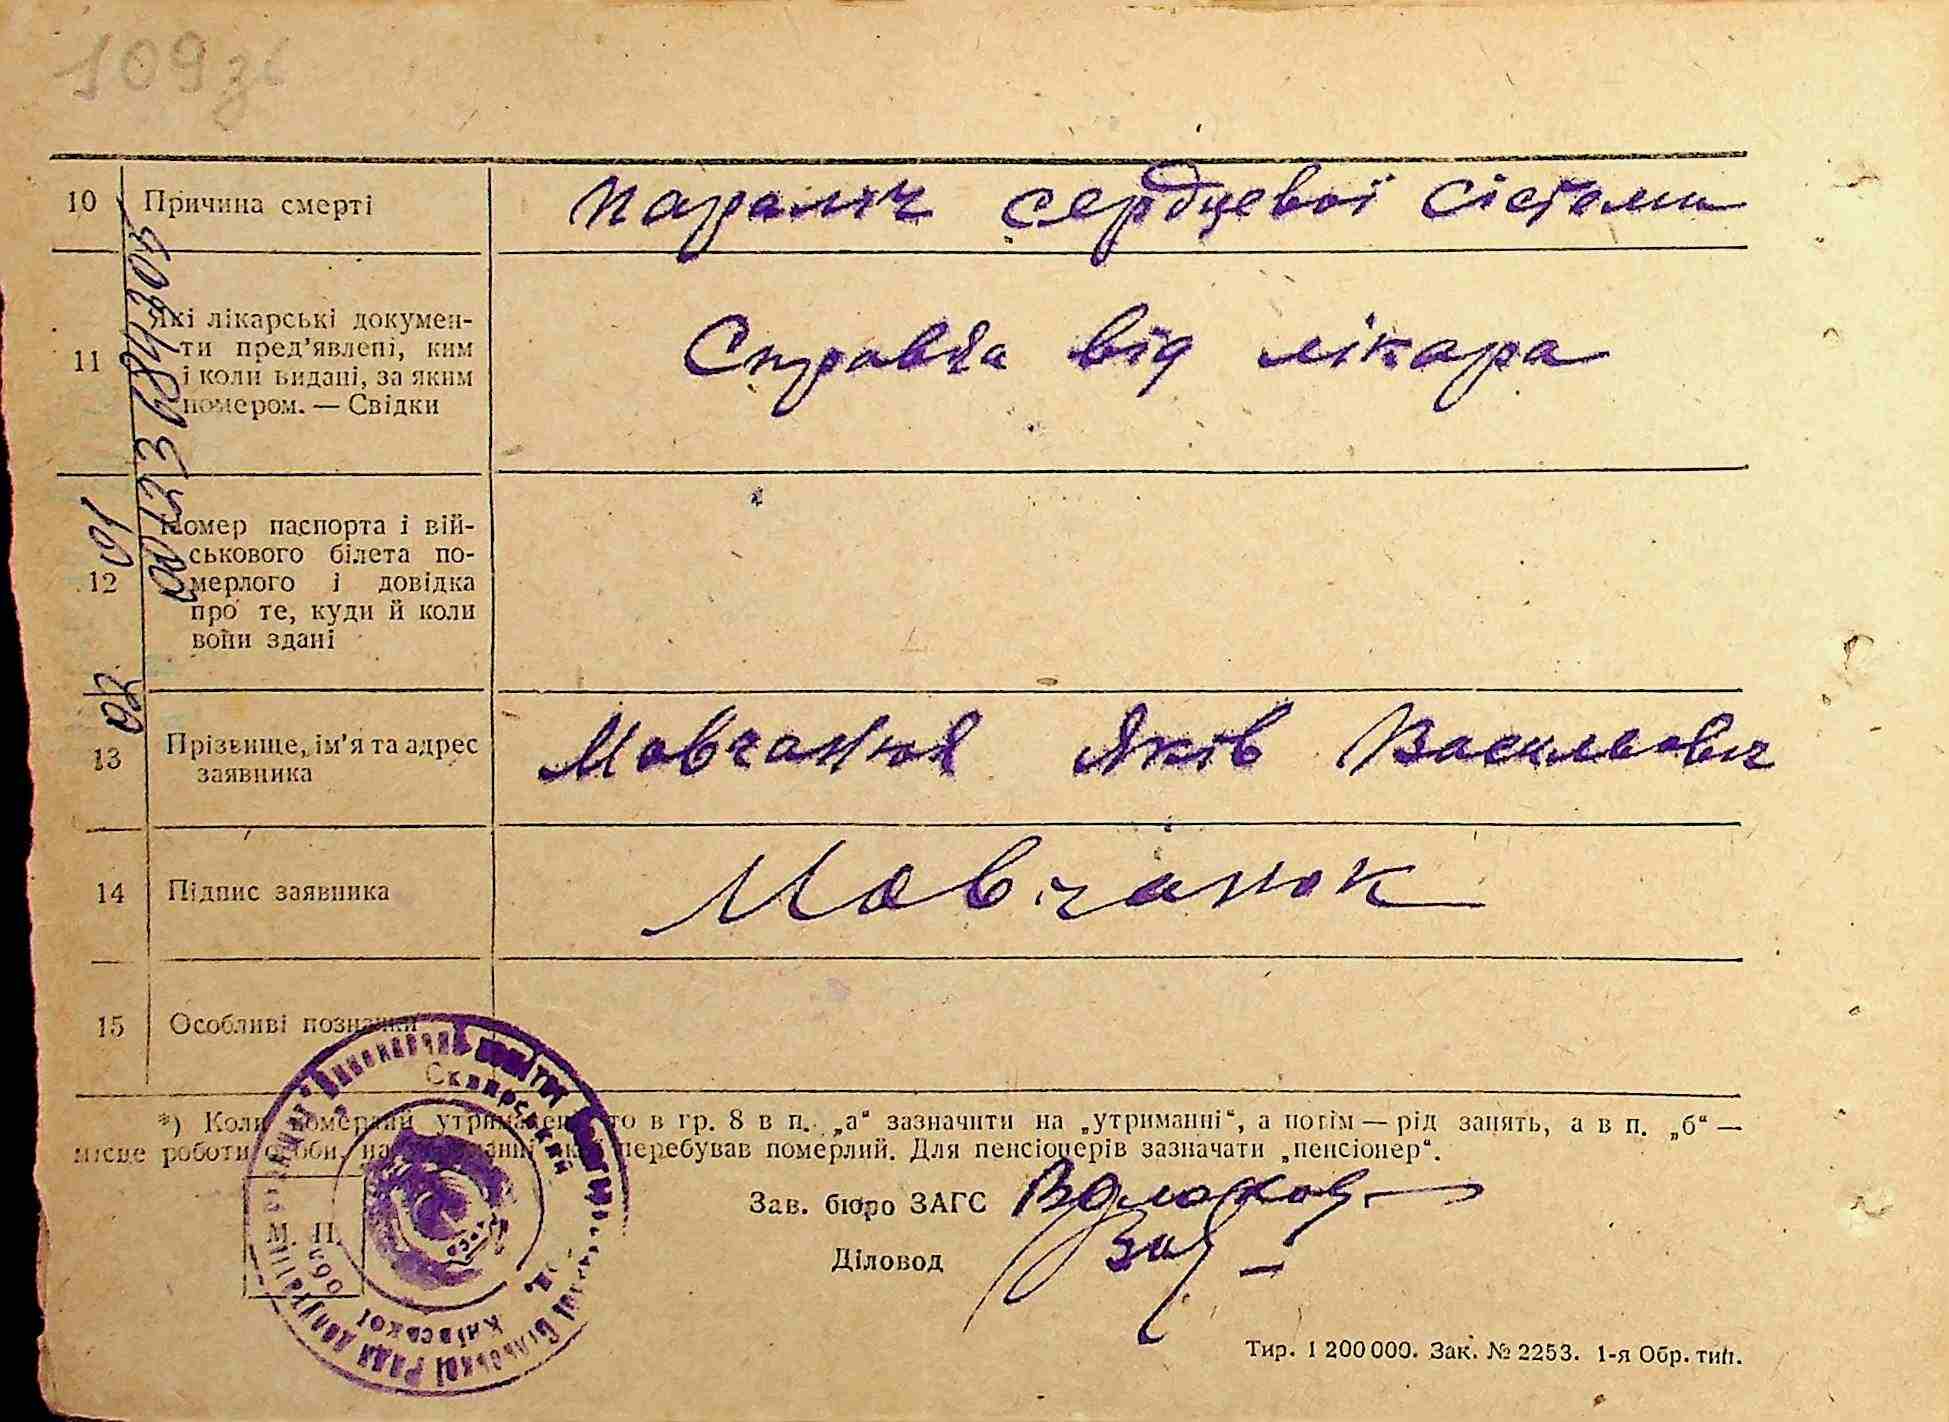 109зв
10 Причина смерті Параліч сердцевої сістеми
11 Які лікарські докумен-
ти пред’явлені, ким
і коли видані, за яким
номером. — Свідки
Справка від лікара
12 Номер паспорта і вій-
ськового білета по-
мерлого і довідка
про те, куди й коли
вони здані
13 Прізвище, ім’я та адрес
заявника
Яків Васильович
14 Підпис заявника Мовчанюк
15 Особливі познački
*) Коли померлий утриманець то в гр. 8 в п. „а“ зазначити на „утриманні“, а потім — рід занять, а в п. „б“ —
місце роботи особи, на утриманні якої перебував померлий. Для пенсіонерів зазначати „пенсіонер“.
М. П.
Зав. бюро ЗАГС
Діловод
Виконавчий комітет
Сільської Ради депутатів
Сквирський
Київської
Тир. 1 200 000. Зак. № 2253. 1-я Обр. тип.